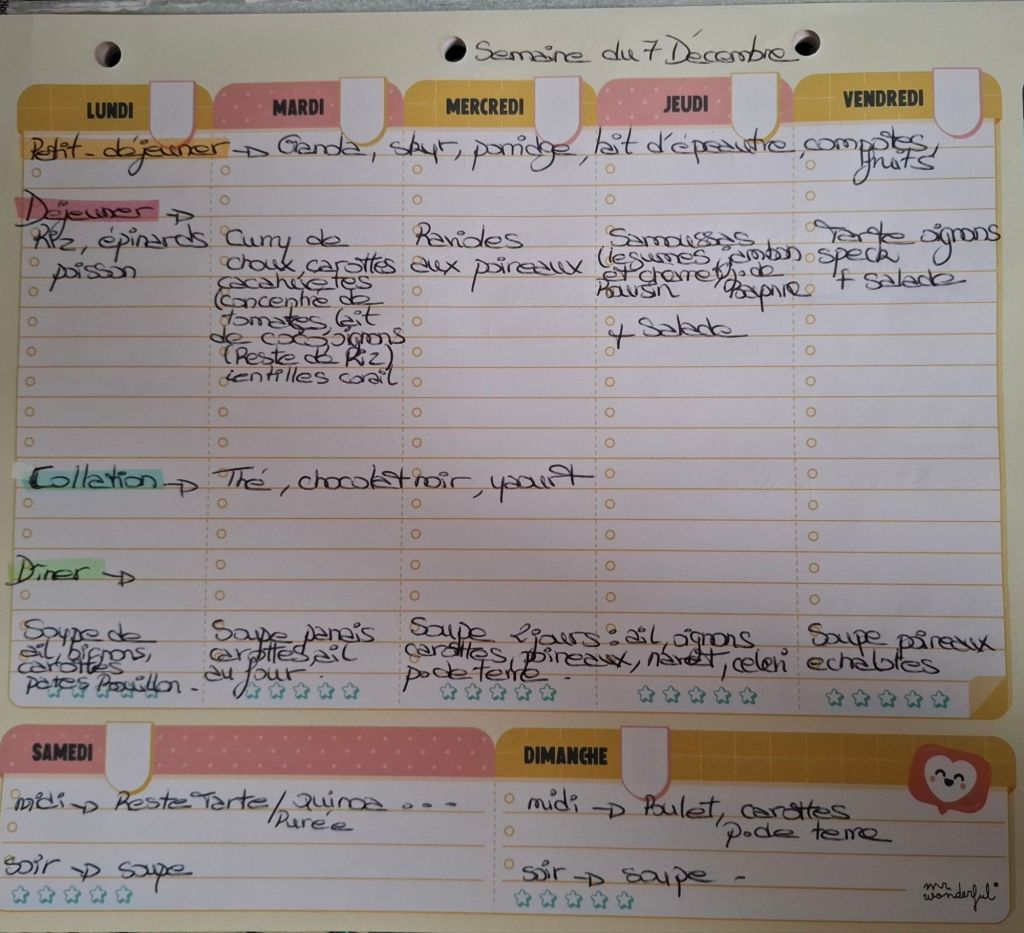 Semaine du 7 Décembre
LUNDI
MARDI
MERCREDI
JEUDI
VENDREDI
Petit-déjeuner → Ganda, skyr, porridge, lait d'épeautre, compotes,
fruits
Déjeuner →
Riz, épinards
poisson
Curry de
choux, carottes
cacahuètes
(concentré de
tomates, lait
de coco, oignons
(Reste de Riz)
lentilles corail
Ravioles
aux poireaux
Samoussas
(légumes, jambon
et
Boursin
+ Salade
Tarte oignons
speck
+ Salade
Collation → Thé, chocolat noir, yaourt
Diner →
Soupe de
ail, oignons,
carottes
pates Bouillon.
Soupe panais
carottes, ail
au four.
Soupe 2 jours : ail, oignons
carottes, poireaux, navet, celeri
p. de terre.
Soupe poireaux
echalotes
SAMEDI
midi → Reste Tarte / Quinoa ...
Purée
soir → soupe
DIMANCHE
midi → Poulet, carottes
p. de terre
soir → soupe -
mr.
wonderful*